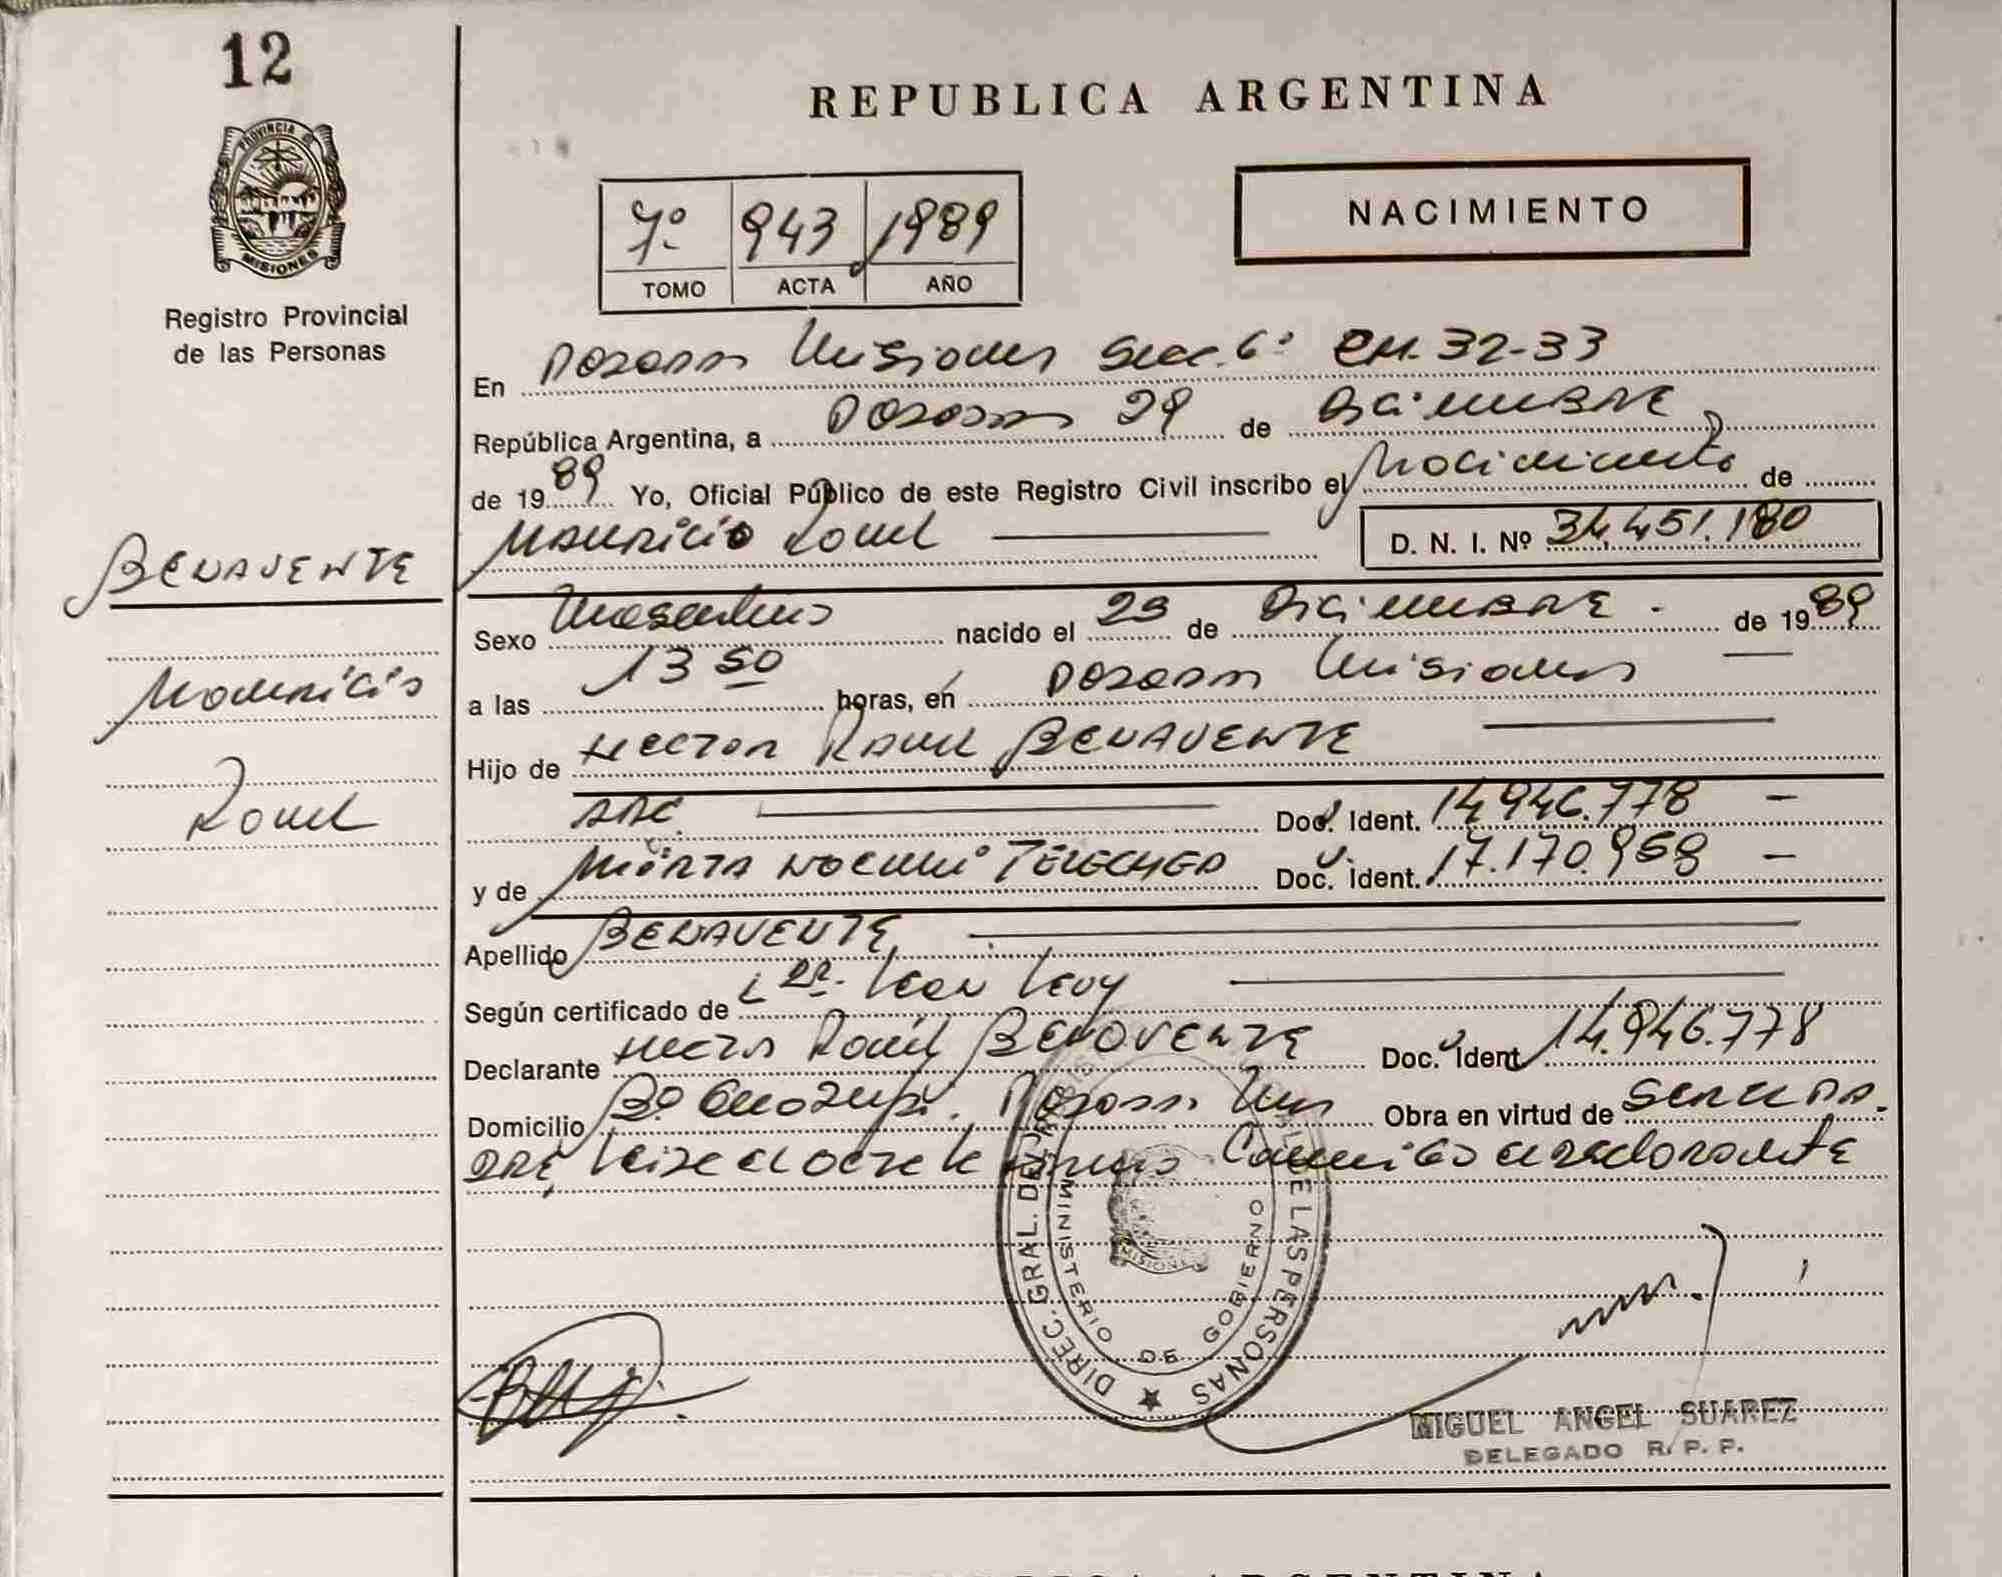 12
PROVINCIA DE
MISIONES
Registro Provincial
de las Personas
BENAVENTE
Mauricio
Raul
REPUBLICA ARGENTINA
7º 943 1989
TOMO ACTA AÑO
NACIMIENTO
En Posadas Misiones Secc. 6º CH. 32-33
República Argentina, a Posadas 29 de Diciembre
de 1989 Yo, Oficial Público de este Registro Civil inscribo el Nacimiento de
Mauricio Raul D. N. I. Nº 34.451.180
Sexo Masculino nacido el 23 de Diciembre de 1989
a las 13 50 horas, en Posadas Misiones
Hijo de Hector Raul BENAVENTE
ARG. Doc. Ident. 14.946.778
y de Mirta Noemi TELECHEA Doc. Ident. 17.170.958
Apellido BENAVENTE
Según certificado de Dr. Leon Levy
Declarante Hector Raul BENAVENTE Doc. Ident 14.946.778
Domicilio Bº Posadas Mns Obra en virtud de
ARG, Leida el acta la
DIREC. GRAL. DEL REG. PROVINCIAL DE LAS PERSONAS
MINISTERIO DE GOBIERNO
MISIONES
MIGUEL ANGEL SUAREZ
DELEGADO R. P. P.
REPUBLICA ARGENTINA